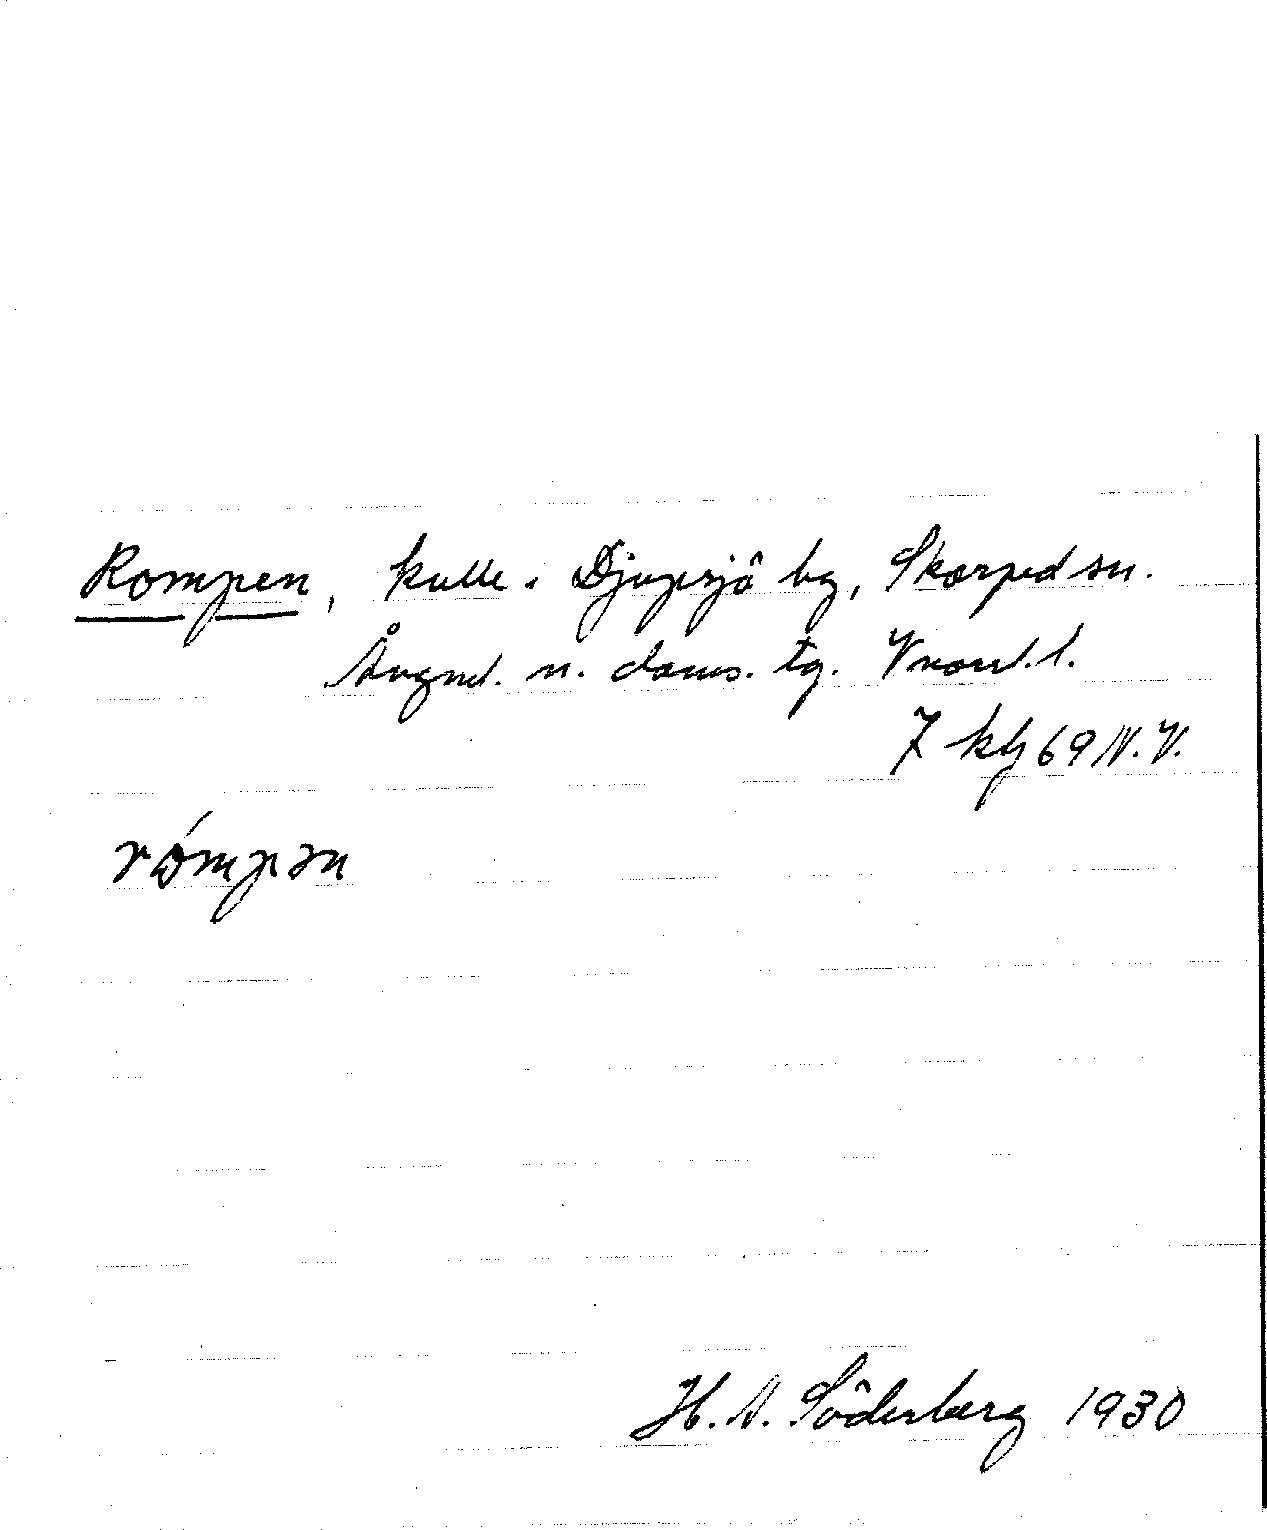 Rompen, kulle i Djupsjö by, Skorped sn.
Ångml. n. doms. tg. Vnorrl. l.
7 klg 69 N.V.
rómpən
H. A. Söderberg 1930